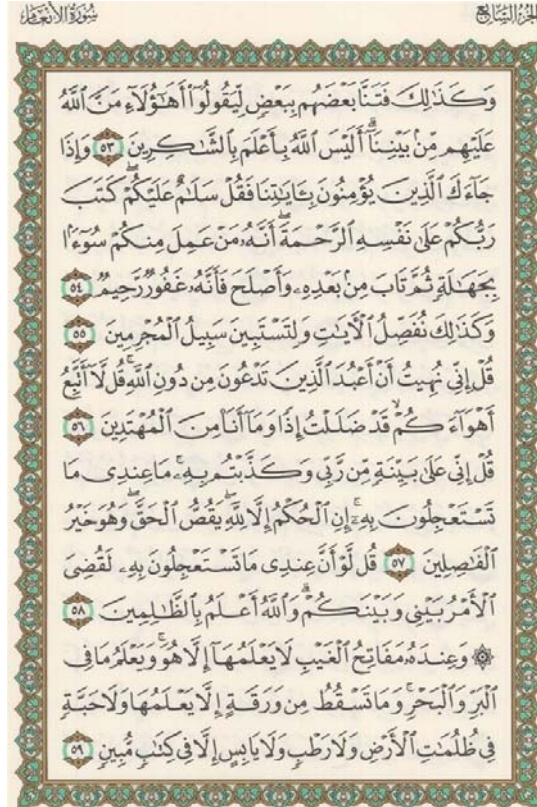 الجزء السابع
سورة الأنعام
وَكَذَٰلِكَ فَتَنَّا بَعْضَهُم بِبَعْضٍ لِّيَقُولُوٓا۟ أَهَـٰٓؤُلَآءِ مَنَّ ٱللَّهُ
عَلَيْهِم مِّنۢ بَيْنِنَآ ۗ أَلَيْسَ ٱللَّهُ بِأَعْلَمَ بِٱلشَّـٰكِرِينَ ٥٣ وَإِذَا
جَآءَكَ ٱلَّذِينَ يُؤْمِنُونَ بِـَٔايَـٰتِنَا فَقُلْ سَلَـٰمٌ عَلَيْكُمْ ۖ كَتَبَ
رَبُّكُمْ عَلَىٰ نَفْسِهِ ٱلرَّحْمَةَ ۖ أَنَّهُۥ مَنْ عَمِلَ مِنكُمْ سُوٓءًۢا
بِجَهَـٰلَةٍ ثُمَّ تَابَ مِنۢ بَعْدِهِۦ وَأَصْلَحَ فَأَنَّهُۥ غَفُورٌ رَّحِيمٌ ٥٤
وَكَذَٰلِكَ نُفَصِّلُ ٱلْـَٔايَـٰتِ وَلِتَسْتَبِينَ سَبِيلُ ٱلْمُجْرِمِينَ ٥٥
قُلْ إِنِّى نُهِيتُ أَنْ أَعْبُدَ ٱلَّذِينَ تَدْعُونَ مِن دُونِ ٱللَّهِ ۚ قُل لَّآ أَتَّبِعُ
أَهْوَآءَكُمْ ۙ قَدْ ضَلَلْتُ إِذًا وَمَآ أَنَا۠ مِنَ ٱلْمُهْتَدِينَ ٥٦
قُلْ إِنِّى عَلَىٰ بَيِّنَةٍ مِّن رَّبِّى وَكَذَّبْتُم بِهِۦ ۚ مَا عِندِى مَا
تَسْتَعْجِلُونَ بِهِۦٓ ۚ إِنِ ٱلْحُكْمُ إِلَّا لِلَّهِ ۖ يَقُصُّ ٱلْحَقَّ ۖ وَهُوَ خَيْرُ
ٱلْفَـٰصِلِينَ ٥٧ قُل لَّوْ أَنَّ عِندِى مَا تَسْتَعْجِلُونَ بِهِۦ لَقُضِىَ
ٱلْأَمْرُ بَيْنِى وَبَيْنَكُمْ ۗ وَٱللَّهُ أَعْلَمُ بِٱلظَّـٰلِمِينَ ٥٨
۞ وَعِندَهُۥ مَفَاتِحُ ٱلْغَيْبِ لَا يَعْلَمُهَآ إِلَّا هُوَ ۚ وَيَعْلَمُ مَا فِى
ٱلْبَرِّ وَٱلْبَحْرِ ۚ وَمَا تَسْقُطُ مِن وَرَقَةٍ إِلَّا يَعْلَمُهَا وَلَا حَبَّةٍ
فِى ظُلُمَـٰتِ ٱلْأَرْضِ وَلَا رَطْبٍ وَلَا يَابِسٍ إِلَّا فِى كِتَـٰبٍ مُّبِينٍ ٥٩